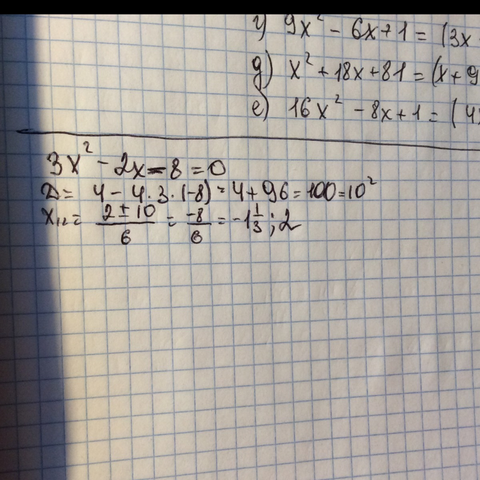 г) 9x² - 6x + 1 = (3x
д) x² + 18x + 81 = (x + 9
е) 16x² - 8x + 1 = (4x
3x² - 2x - 8 = 0
D = 4 - 4 · 3 · (-8) = 4 + 96 = 100 = 10²
x₁,₂ = (2 ± 10)/6 = -8/6 = -1 1/3; 2